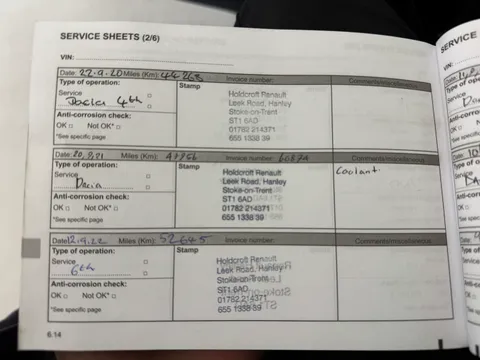 SERVICE SHEETS (2/6)
VIN:
Date: 22.9.20 Miles (Km): 44263 Invoice number: Comments/miscellaneous
Type of operation: Stamp
Service
Dacia 4th
Holdcroft Renault
Leek Road, Hanley
Stoke-on-Trent
ST1 6AD
01782 214371
655 1338 39
Anti-corrosion check:
OK Not OK*
*See specific page
Date: 20.9.21 Miles (Km): Invoice number: Comments/miscellaneous
Type of operation: Stamp
Service
Dacia
Holdcroft Renault
Leek Road, Hanley
Stoke-on-Trent
ST1 6AD
01782 214371
655 1338 39
Coolant
Anti-corrosion check:
OK Not OK*
*See specific page
Date: 12.9.22 Miles (Km): 52645 Invoice number: Comments/miscellaneous
Type of operation: Stamp
Service
6th
Holdcroft Renault
Leek Road, Hanley
Stoke-on-Trent
ST1 6AD
01782 214371
655 1338 39
Anti-corrosion check:
OK Not OK*
*See specific page
6.14
SERVICE
VIN:
Type of
Service
Anti-corro
OK
*See spec
Type of
Service
Anti-corro
OK
*See spec
Type of
Service
Anti-corr
OK
*See spe